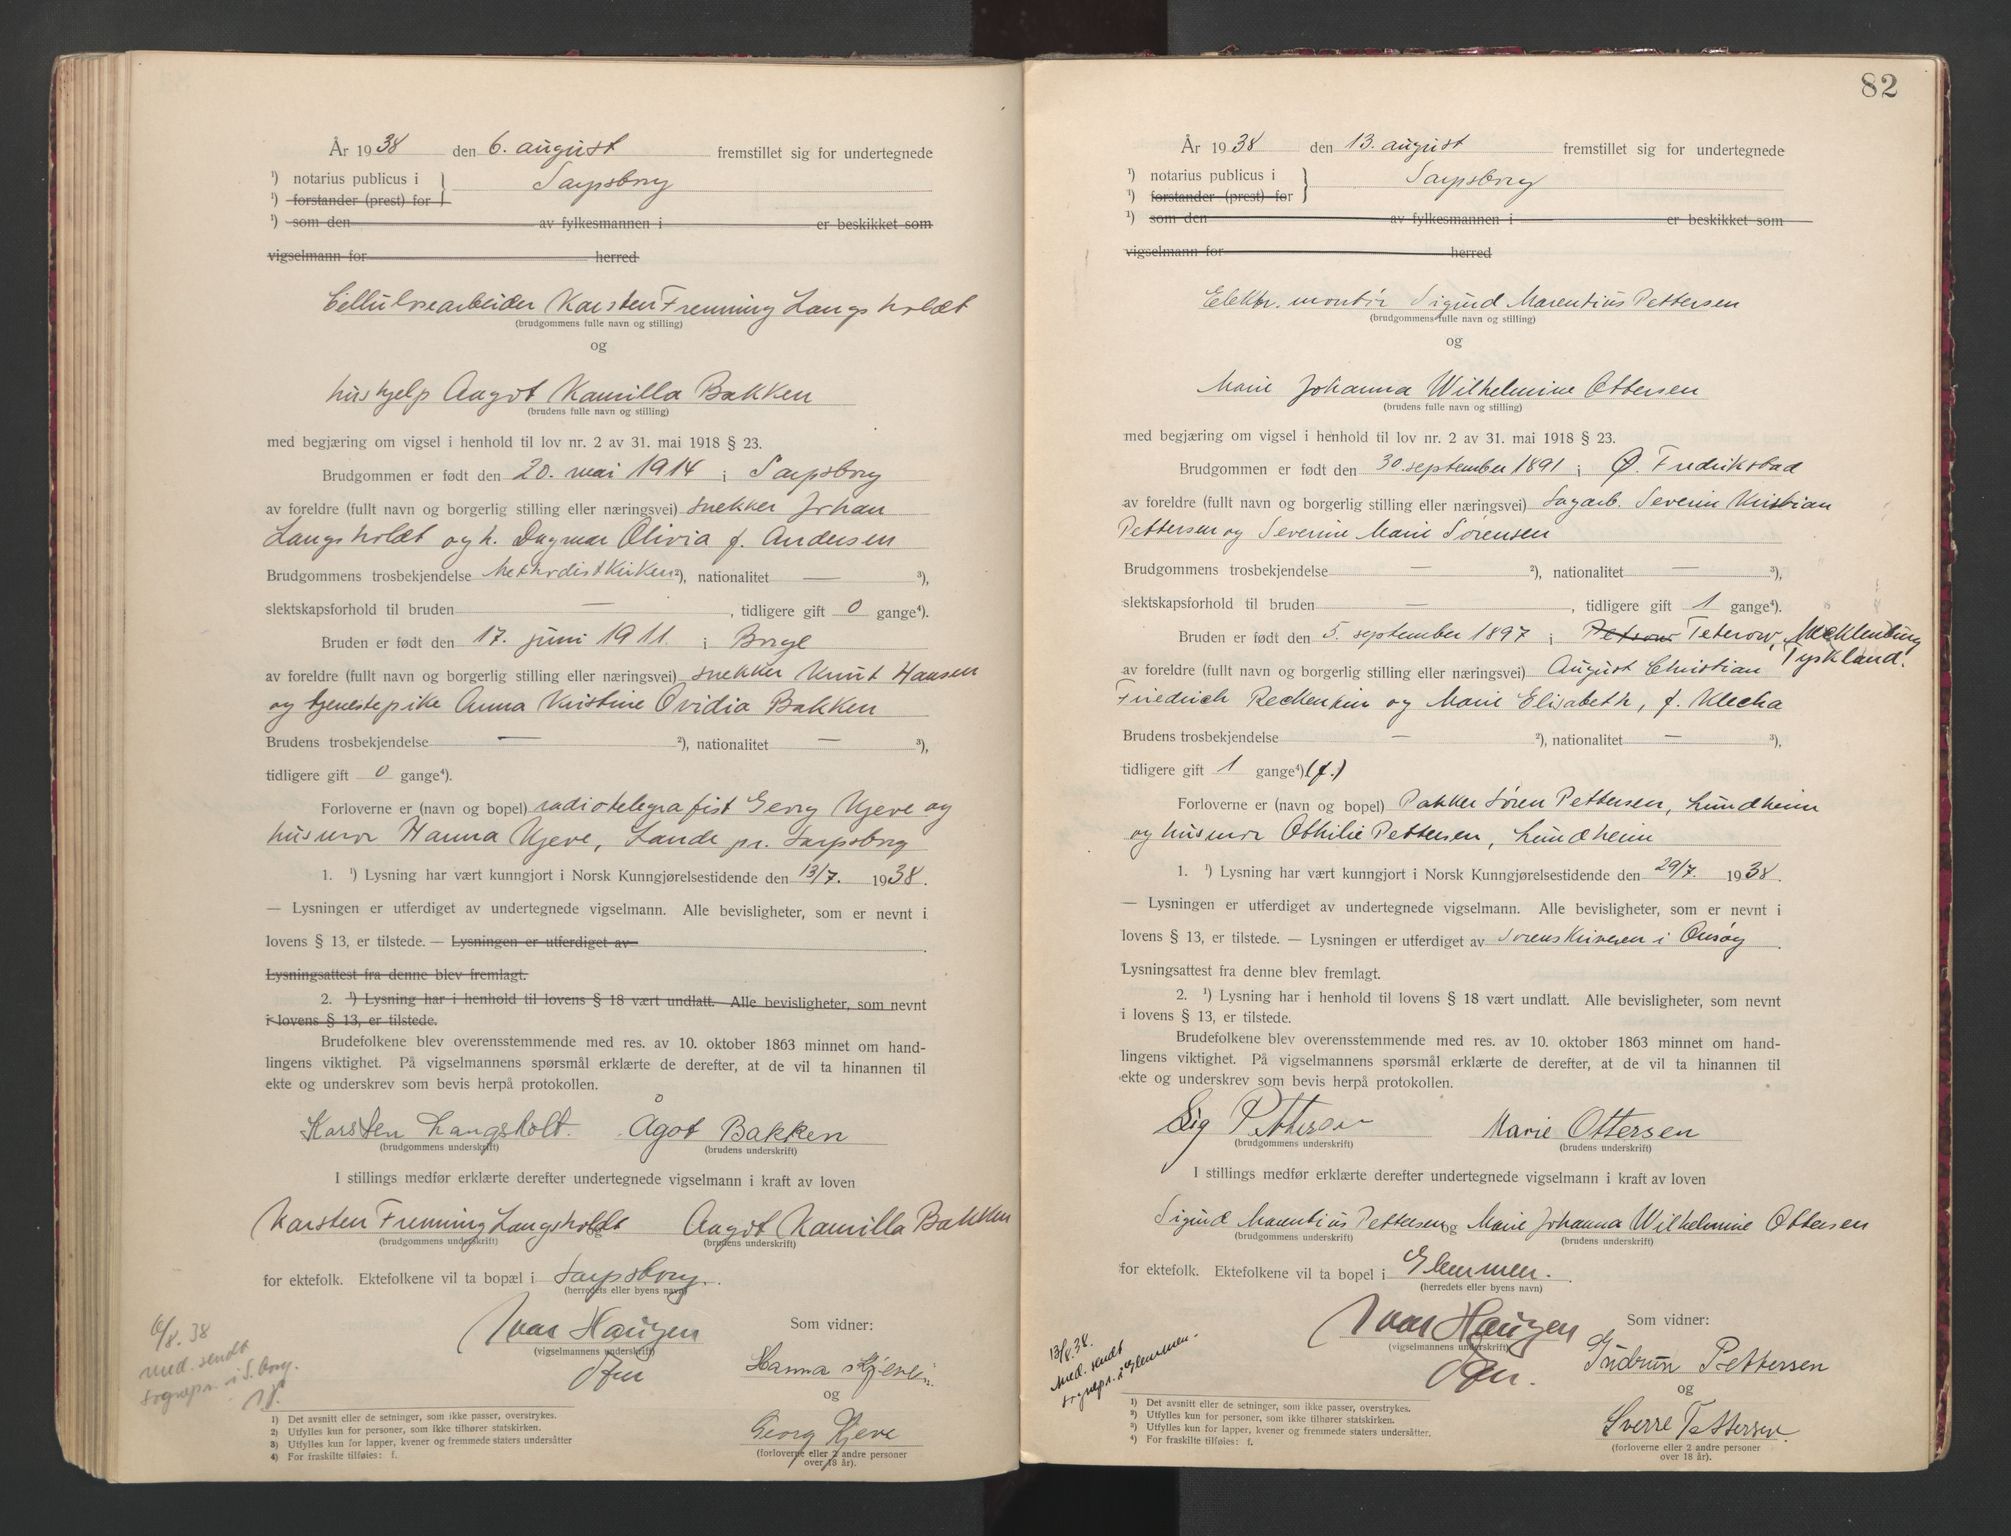 År 1938 den 6. august fremstillet sig for undertegnede
¹) notarius publicus i } Sarpsborg
¹) forstander (prest) for
¹) som den av fylkesmannen i er beskikket som
vigselmann for herred
Cellulosearbeider Karsten Frenning Langsholdt
(brudgommens fulle navn og stilling)
og
hushjelp Aagot Kamilla Bakken
(brudens fulle navn og stilling)
med begjæring om vigsel i henhold til lov nr. 2 av 31. mai 1918 § 23.
Brudgommen er født den 20. mai 1914 i Sarpsborg
av foreldre (fullt navn og borgerlig stilling eller næringsvei) snekker Johan
Langsholdt og h. Dagmar Olivia f. Andersen
Brudgommens trosbekjendelse Methodistkirken ²), nationalitet — ³),
slektskapsforhold til bruden — , tidligere gift 0 gange⁴).
Bruden er født den 17. juni 1911. i Borge
av foreldre (fullt navn og borgerlig stilling eller næringsvei) snekker Knut Hansen
og tjenestepike Anna Kristine Ovidia Bakken
Brudens trosbekjendelse — ²), nationalitet — ³),
tidligere gift 0 gange⁴).
Forloverne er (navn og bopel) radiotelegrafist Georg Kjeve og
husmor Hanna Kjeve, Lande pr. Sarpsborg
1. ¹) Lysning har vært kunngjort i Norsk Kunngjørelsestidende den 13/7. 1938.
— Lysningen er utferdiget av undertegnede vigselmann. Alle bevisligheter, som er nevnt i
lovens § 13, er tilstede. — Lysningen er utferdiget av
Lysningsattest fra denne blev fremlagt.
2. ¹) Lysning har i henhold til lovens § 18 vært undlatt. Alle bevisligheter, som nevnt
i lovens § 13, er tilstede.
Brudefolkene blev overensstemmende med res. av 10. oktober 1863 minnet om hand-
lingens viktighet. På vigselmannens spørsmål erklærte de derefter, at de vil ta hinannen til
ekte og underskrev som bevis herpå protokollen.
Karsten Langsholt. Ågot Bakken
(brudgommens underskrift) (brudens underskrift)
I stillings medfør erklærte derefter undertegnede vigselmann i kraft av loven
Karsten Frenning Langsholdt og Aagot Kamilla Bakken
(brudgommens underskrift) (brudens underskrift)
for ektefolk. Ektefolkene vil ta bopæl i Sarpsborg.
(herredets eller byens navn)
Ivar Haugen
(vigselmannens underskrift)
Som vidner:
Hanna Kjeve
og
Georg Kjeve
(forloverne eller 2 andre personer
over 18 år).
6/8. 38
med. sendt
sognepr. i S.borg.
¹) Det avsnitt eller de setninger, som ikke passer, overstrykes.
²) Utfylles kun for personer, som ikke tilhører statskirken.
³) Utfylles kun for lapper, kvener og fremmede staters undersåtter
⁴) For fraskilte tilføies: f.
82
År 1938 den 13. august fremstillet sig for undertegnede
¹) notarius publicus i } Sarpsborg
¹) forstander (prest) for
¹) som den av fylkesmannen i er beskikket som
vigselmann for herred
Elektr. montør Sigurd Marentius Pettersen
(brudgommens fulle navn og stilling)
og
Marie Johanna Wilhelmine Ottersen
(brudens fulle navn og stilling)
med begjæring om vigsel i henhold til lov nr. 2 av 31. mai 1918 § 23.
Brudgommen er født den 30. september 1891 i Ø. Fredrikstad
av foreldre (fullt navn og borgerlig stilling eller næringsvei) Sagarb. Severin Kristian
Pettersen og Severine Marie Sørensen
Brudgommens trosbekjendelse — ²), nationalitet — ³),
slektskapsforhold til bruden — , tidligere gift 1 gange⁴).
Bruden er født den 5. september 1897 i Teterow, Mecklenburg
Tyskland.
av foreldre (fullt navn og borgerlig stilling eller næringsvei) August Christian
Friedrich Reckenkin og Marie Elisabeth, f. Klecha
Brudens trosbekjendelse — ²), nationalitet — ³),
tidligere gift 1 gange⁴) (f.)
Forloverne er (navn og bopel) Pakker Søren Pettersen, Lundheim
og husmor Othilie Pettersen, Lundheim
1. ¹) Lysning har vært kunngjort i Norsk Kunngjørelsestidende den 29/7. 1938.
— Lysningen er utferdiget av undertegnede vigselmann. Alle bevisligheter, som er nevnt i
lovens § 13, er tilstede. — Lysningen er utferdiget av Sorenskriveren i Onsøy
Lysningsattest fra denne blev fremlagt.
2. ¹) Lysning har i henhold til lovens § 18 vært undlatt. Alle bevisligheter, som nevnt
i lovens § 13, er tilstede.
Brudefolkene blev overensstemmende med res. av 10. oktober 1863 minnet om hand-
lingens viktighet. På vigselmannens spørsmål erklærte de derefter, at de vil ta hinannen til
ekte og underskrev som bevis herpå protokollen.
Sig Pettersen Marie Ottersen
(brudgommens underskrift) (brudens underskrift)
I stillings medfør erklærte derefter undertegnede vigselmann i kraft av loven
Sigurd Marentius Pettersen og Marie Johanna Wilhelmine Ottersen
(brudgommens underskrift) (brudens underskrift)
for ektefolk. Ektefolkene vil ta bopel i Glemmen.
(herredets eller byens navn)
Ivar Haugen
(vigselmannens underskrift)
Som vidner:
Gudrun Pettersen
og
Sverre Pettersen.
(forloverne eller 2 andre personer
over 18 år).
13/8.38.
med. sendt
sognepr. i Glemmen.
¹) Det avsnitt eller de setninger, som ikke passer, overstrykes.
²) Utfylles kun for personer, som ikke tilhører statskirken.
³) Utfylles kun for lapper, kvener og fremmede staters undersåtter.
⁴) For fraskilte tilføies: f.